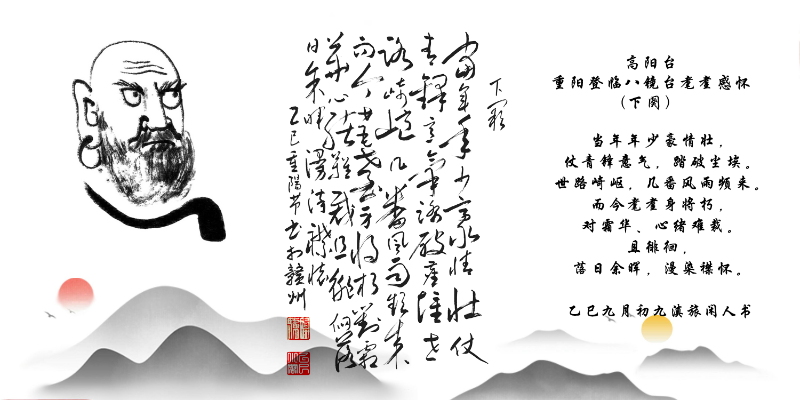 下阕
当年年少豪情壮仗
青锋意气踏破尘埃世
路崎岖几番风雨频来
而今老耄身将朽对霜
华心绪难裁且徘徊落
日余晖漫染襟怀
乙巳重阳节书于赣州
高阳台
重阳登临八镜台老耄感怀
(下阕)
当年年少豪情壮，
仗青锋意气，踏破尘埃。
世路崎岖，几番风雨频来。
而今老耄身将朽，
对霜华、心绪难裁。
且徘徊，
落日余晖，漫染襟怀。
乙巳九月初九滇旅闲人书